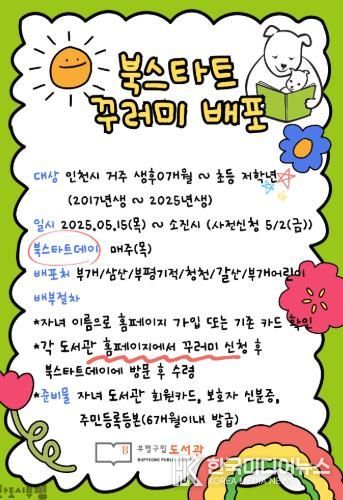 북스타트
꾸러미 배포
대상 인천시 거주 생후0개월 ~ 초등 저학년
(2017년생 ~ 2025년생)
일시 2025.05.15(목) ~ 소진시 (사전신청 5/2(금))
북스타트데이 매주(목)
배포처 부개/삼산/부평기적/청천/갈산/부개어린이
배부절차
*자녀 이름으로 홈페이지 가입 또는 기존 카드 확인
*각 도서관 홈페이지에서 꾸러미 신청 후
북스타트데이에 방문 후 수령
*준비물 자녀 도서관 회원카드, 보호자 신분증,
주민등록등본(6개월이내 발급)
B 부평구립 도서관
BUPYEONG PUBLIC
HK 한국미디어뉴스
KOREA MEDIA NEWS